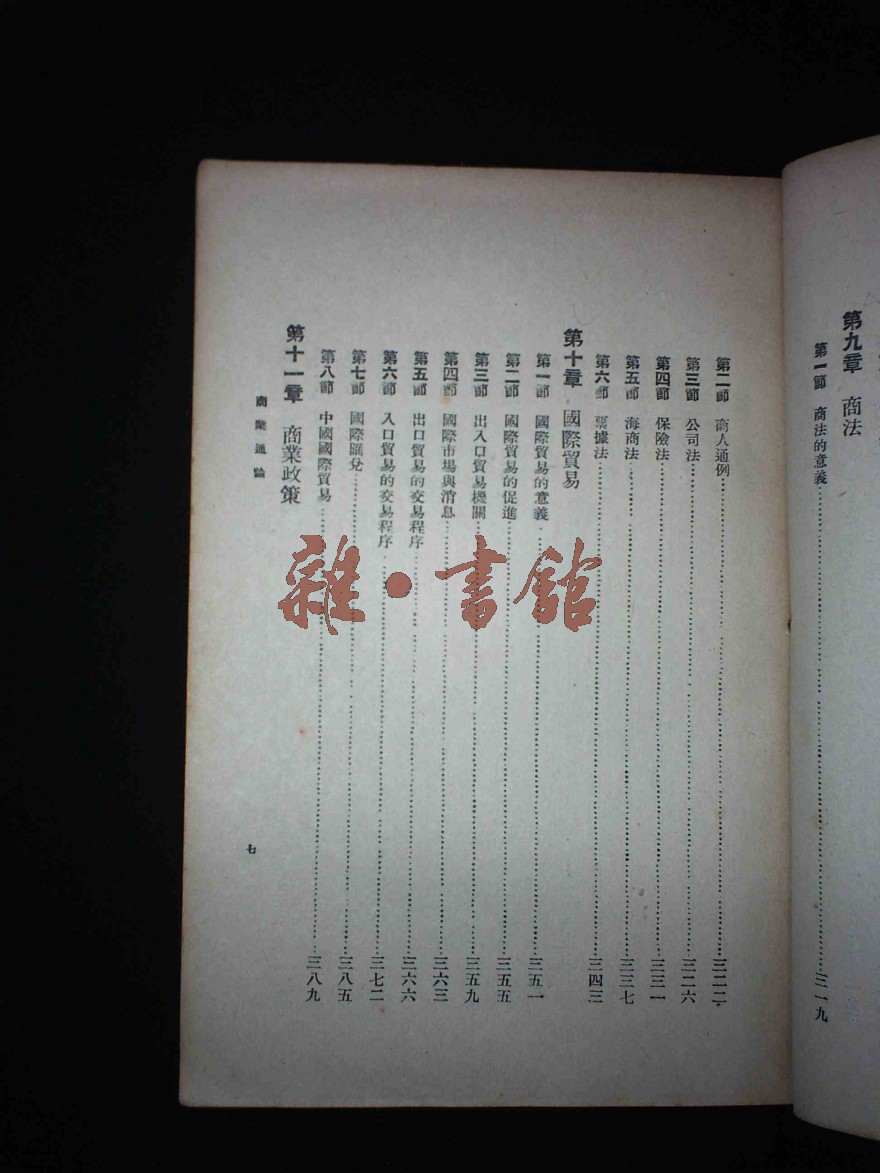 第九章 商法
第一節 商法的意義……三一九
第二節 商人通例……三二二
第三節 公司法……三二六
第四節 保險法……三三一
第五節 海商法……三三七
第六節 票據法……三四三
第十章 國際貿易
第一節 國際貿易的意義……三五一
第二節 國際貿易的促進……三五五
第三節 出入口貿易機關……三五九
第四節 國際市場與消息……三六三
第五節 出口貿易的交易程序……三六六
第六節 入口貿易的交易程序……三七二
第七節 國際匯兌……三八五
第八節 中國國際貿易……三八九
第十一章 商業政策
商業通論
七
雜·書館